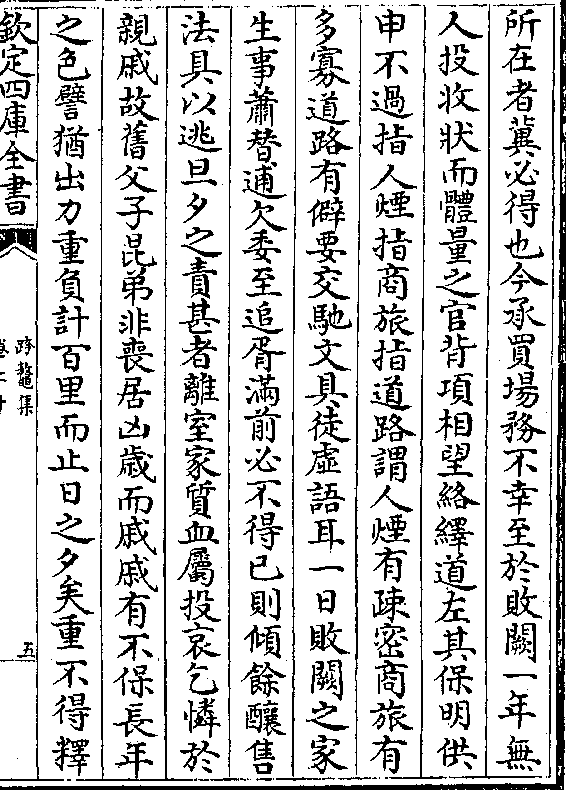 所在者冀必得也今承買場務不幸至於敗闕一年無
人投收狀而體量之官背項相望絡繹道左其保明供
申不過指人煙指商旅指道路謂人煙有疎密商旅有
多寡道路有僻要交馳文具徒虛語耳一日敗闕之家
生事蕭替逋欠委至追胥滿前必不得已則傾餘釀售
法具以逃旦夕之責甚者離室家質血屬投哀乞憐於
親戚故舊父子昆弟非喪居凶歳而戚戚有不保長年
之色譬猶出力重負計百里而止日之夕矣重不得釋
欽定四庫全書
跨鼇集
五